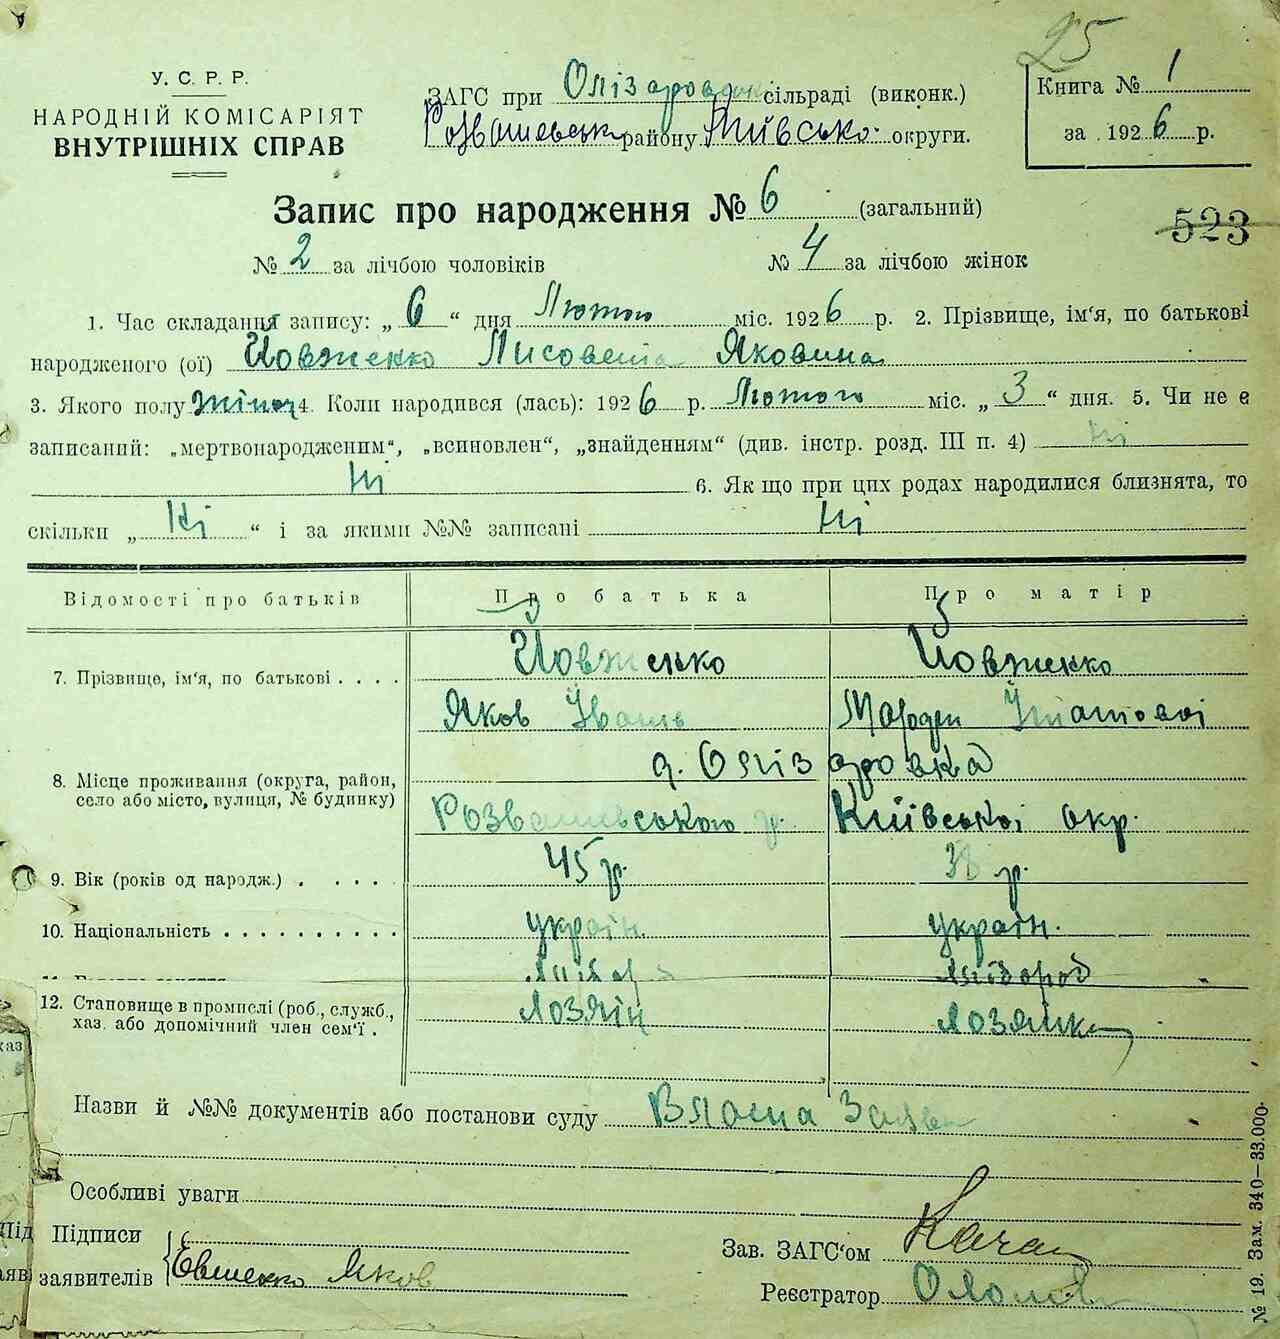 25
У. С. Р. Р.
НАРОДНІЙ КОМІСАРІЯТ
ВНУТРІШНІХ СПРАВ
ЗАГС при Олізаровской сільраді (виконк.)
Розвашевськ району Київсько округи.
Книга № 1
за 1926 р.
Запис про народження № 6 (загальний)
523
№ 2 за лічбою чоловіків № 4 за лічбою жінок
1. Час складання запису: „6“ дня Лютого міс. 1926 р. 2. Прізвище, ім'я, по батькові
народженого (ої) Йовженко Лисовета Яковина
3. Якого полу жіноч 4. Коли народився (лась): 1926 р. Лютого міс. „3“ дня. 5. Чи не є
записаний: „мертвонародженим“, „всиновлен“, „знайденням“ (див. інстр. розд. III п. 4) Ні
Ні 6. Як що при цих родах народилися близнята, то
скільки „Ні“ і за якими №№ записані Ні
Відомості про батьків Про батька Про матір
Йовженко Йовженко
7. Прізвище, ім'я, по батькові . . . .
Яков Іванів
д. Олізаровка
8. Місце проживання (округа, район,
село або місто, вулиця, № будинку)
Розвашевського р. Київської окр.
9. Вік (років од народж.) . . . . . 45 р. 38 р.
10. Національність . . . . . . . . . . україн. україн.
хлібороб
12. Становище в промислі (роб., служб.,
хаз. або допомічний член сем'ї .
хозяін хозяйка
Назви й №№ документів або постанови суду Власна заява
Особливі уваги
Підписи
заявителів Євженко Яков
Зав. ЗАГС'ом
Реєстратор
№ 19. Зам. 340—33.000.